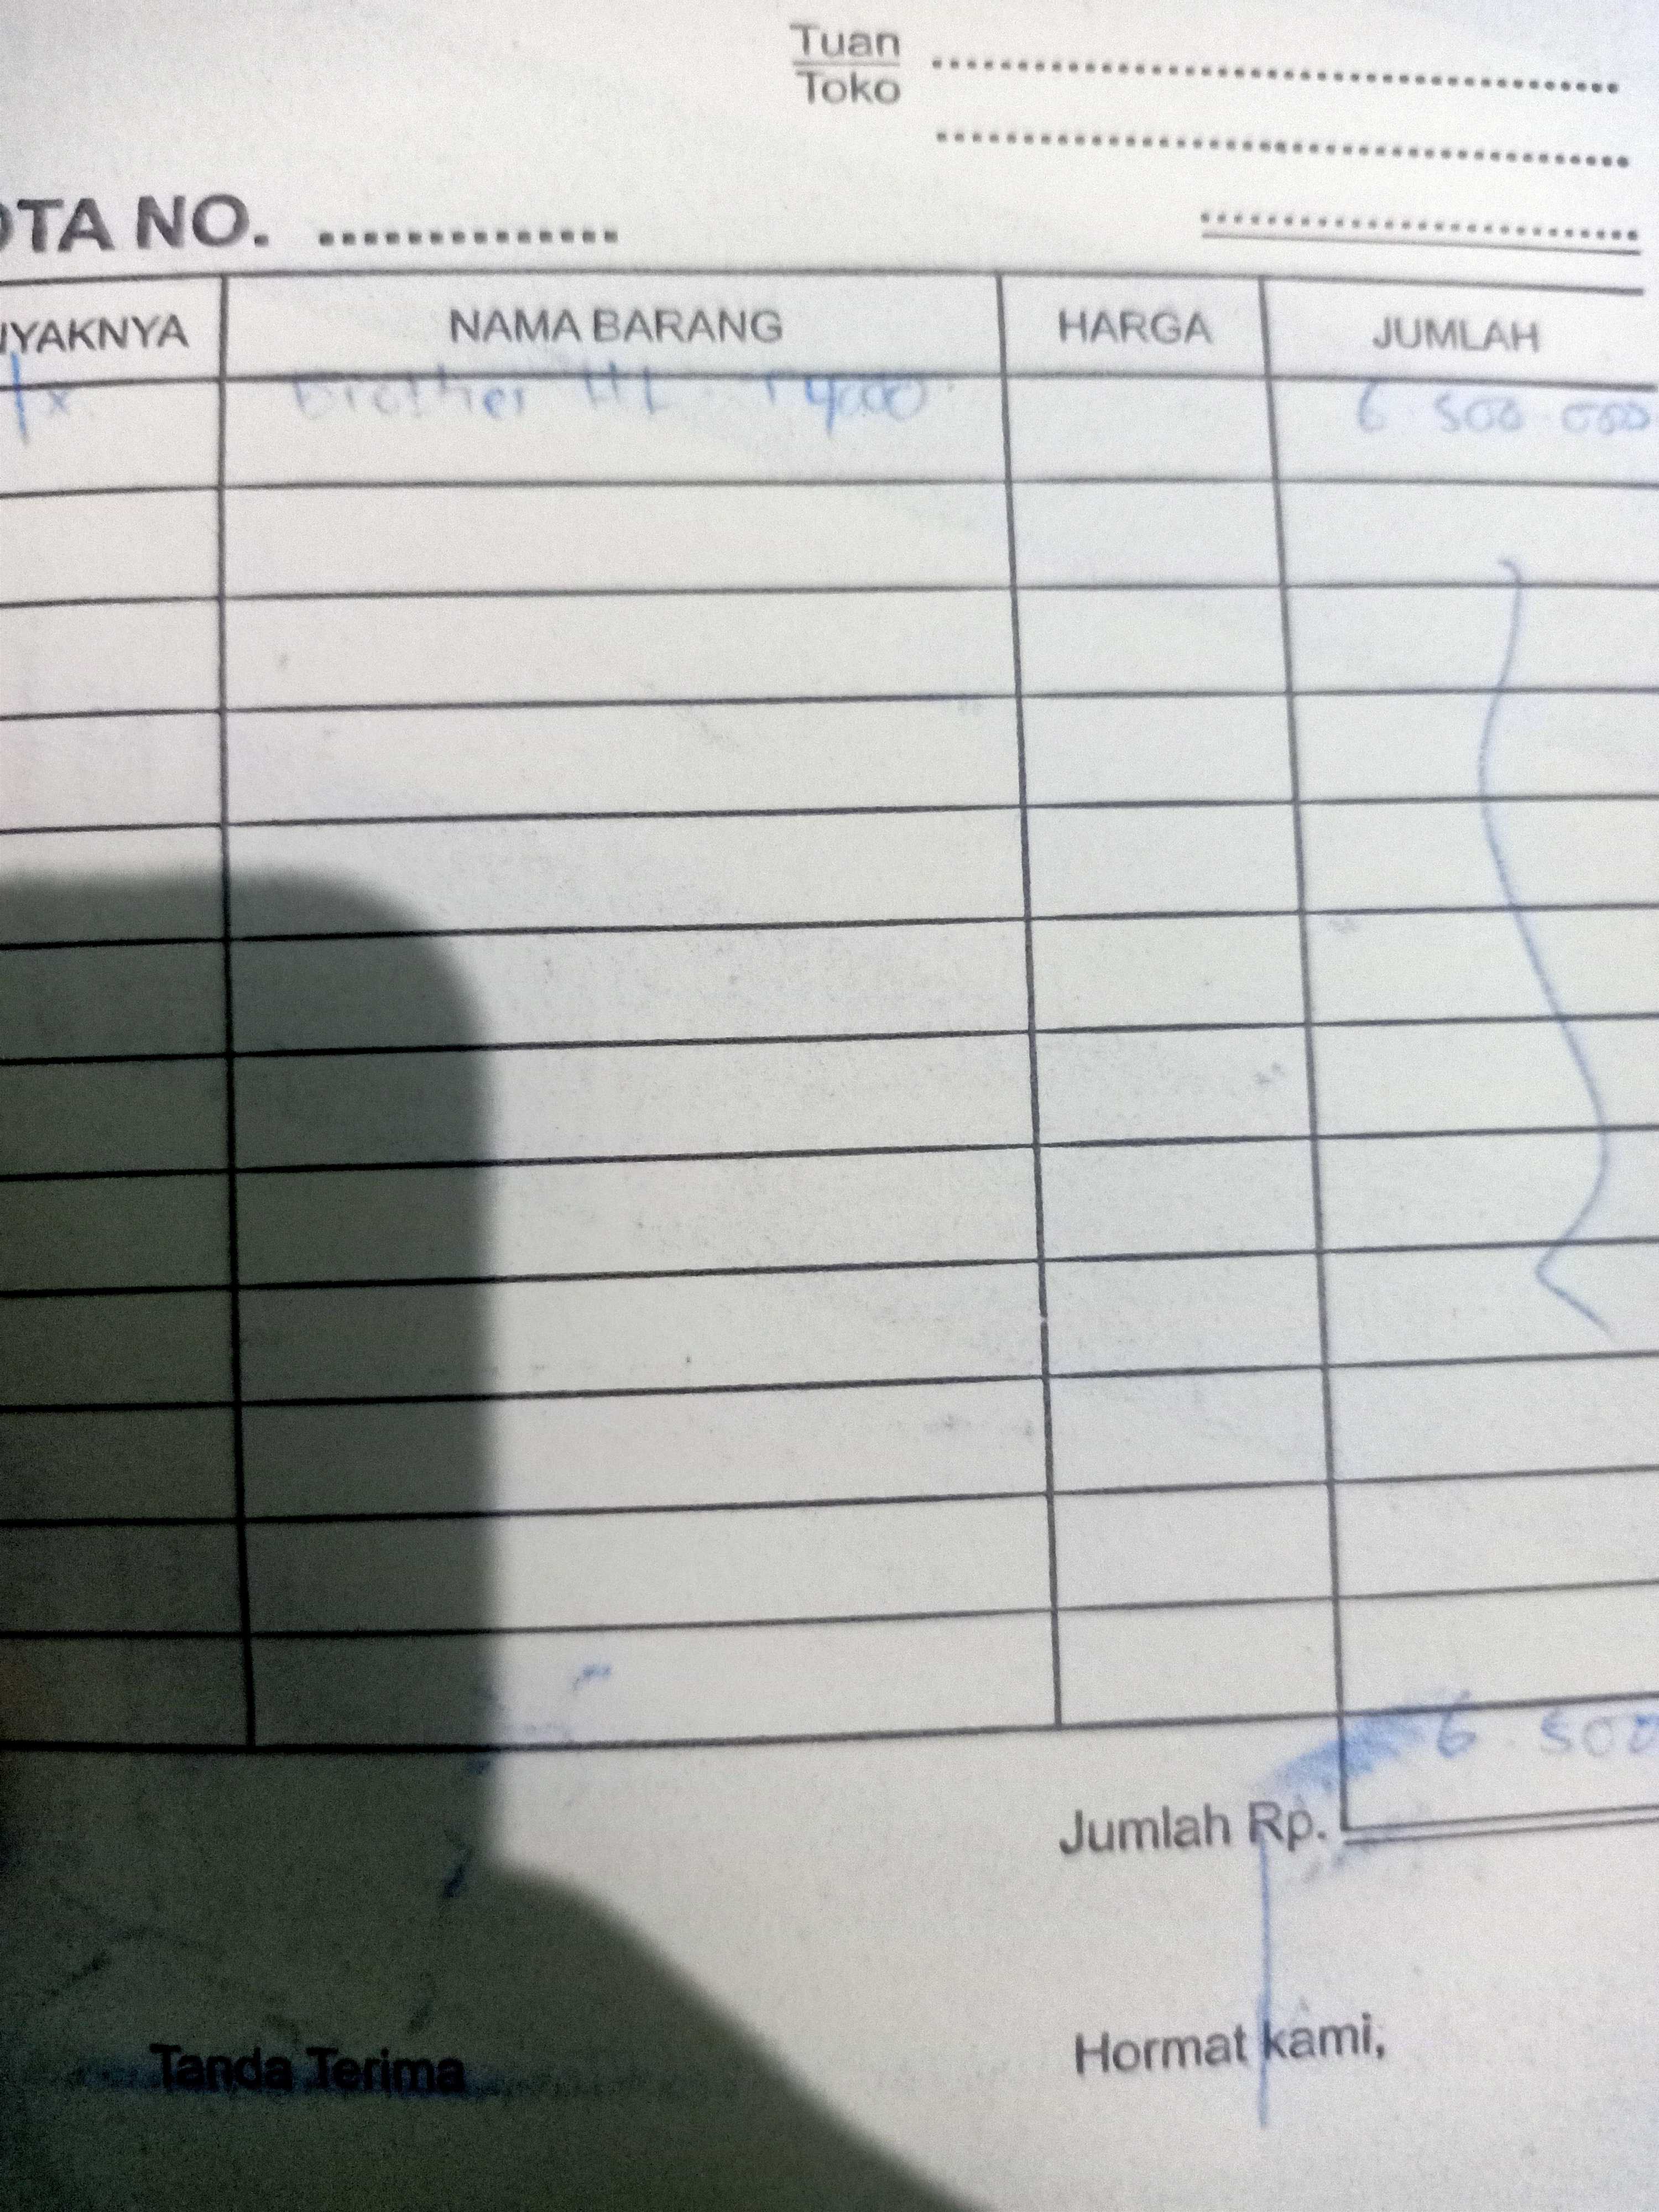 Tuan
Toko
OTA NO.
NYAKNYA NAMA BARANG HARGA JUMLAH
1x Brother HL T4000 6.500.000
6.500
Jumlah Rp.
Tanda Terima Hormat kami,